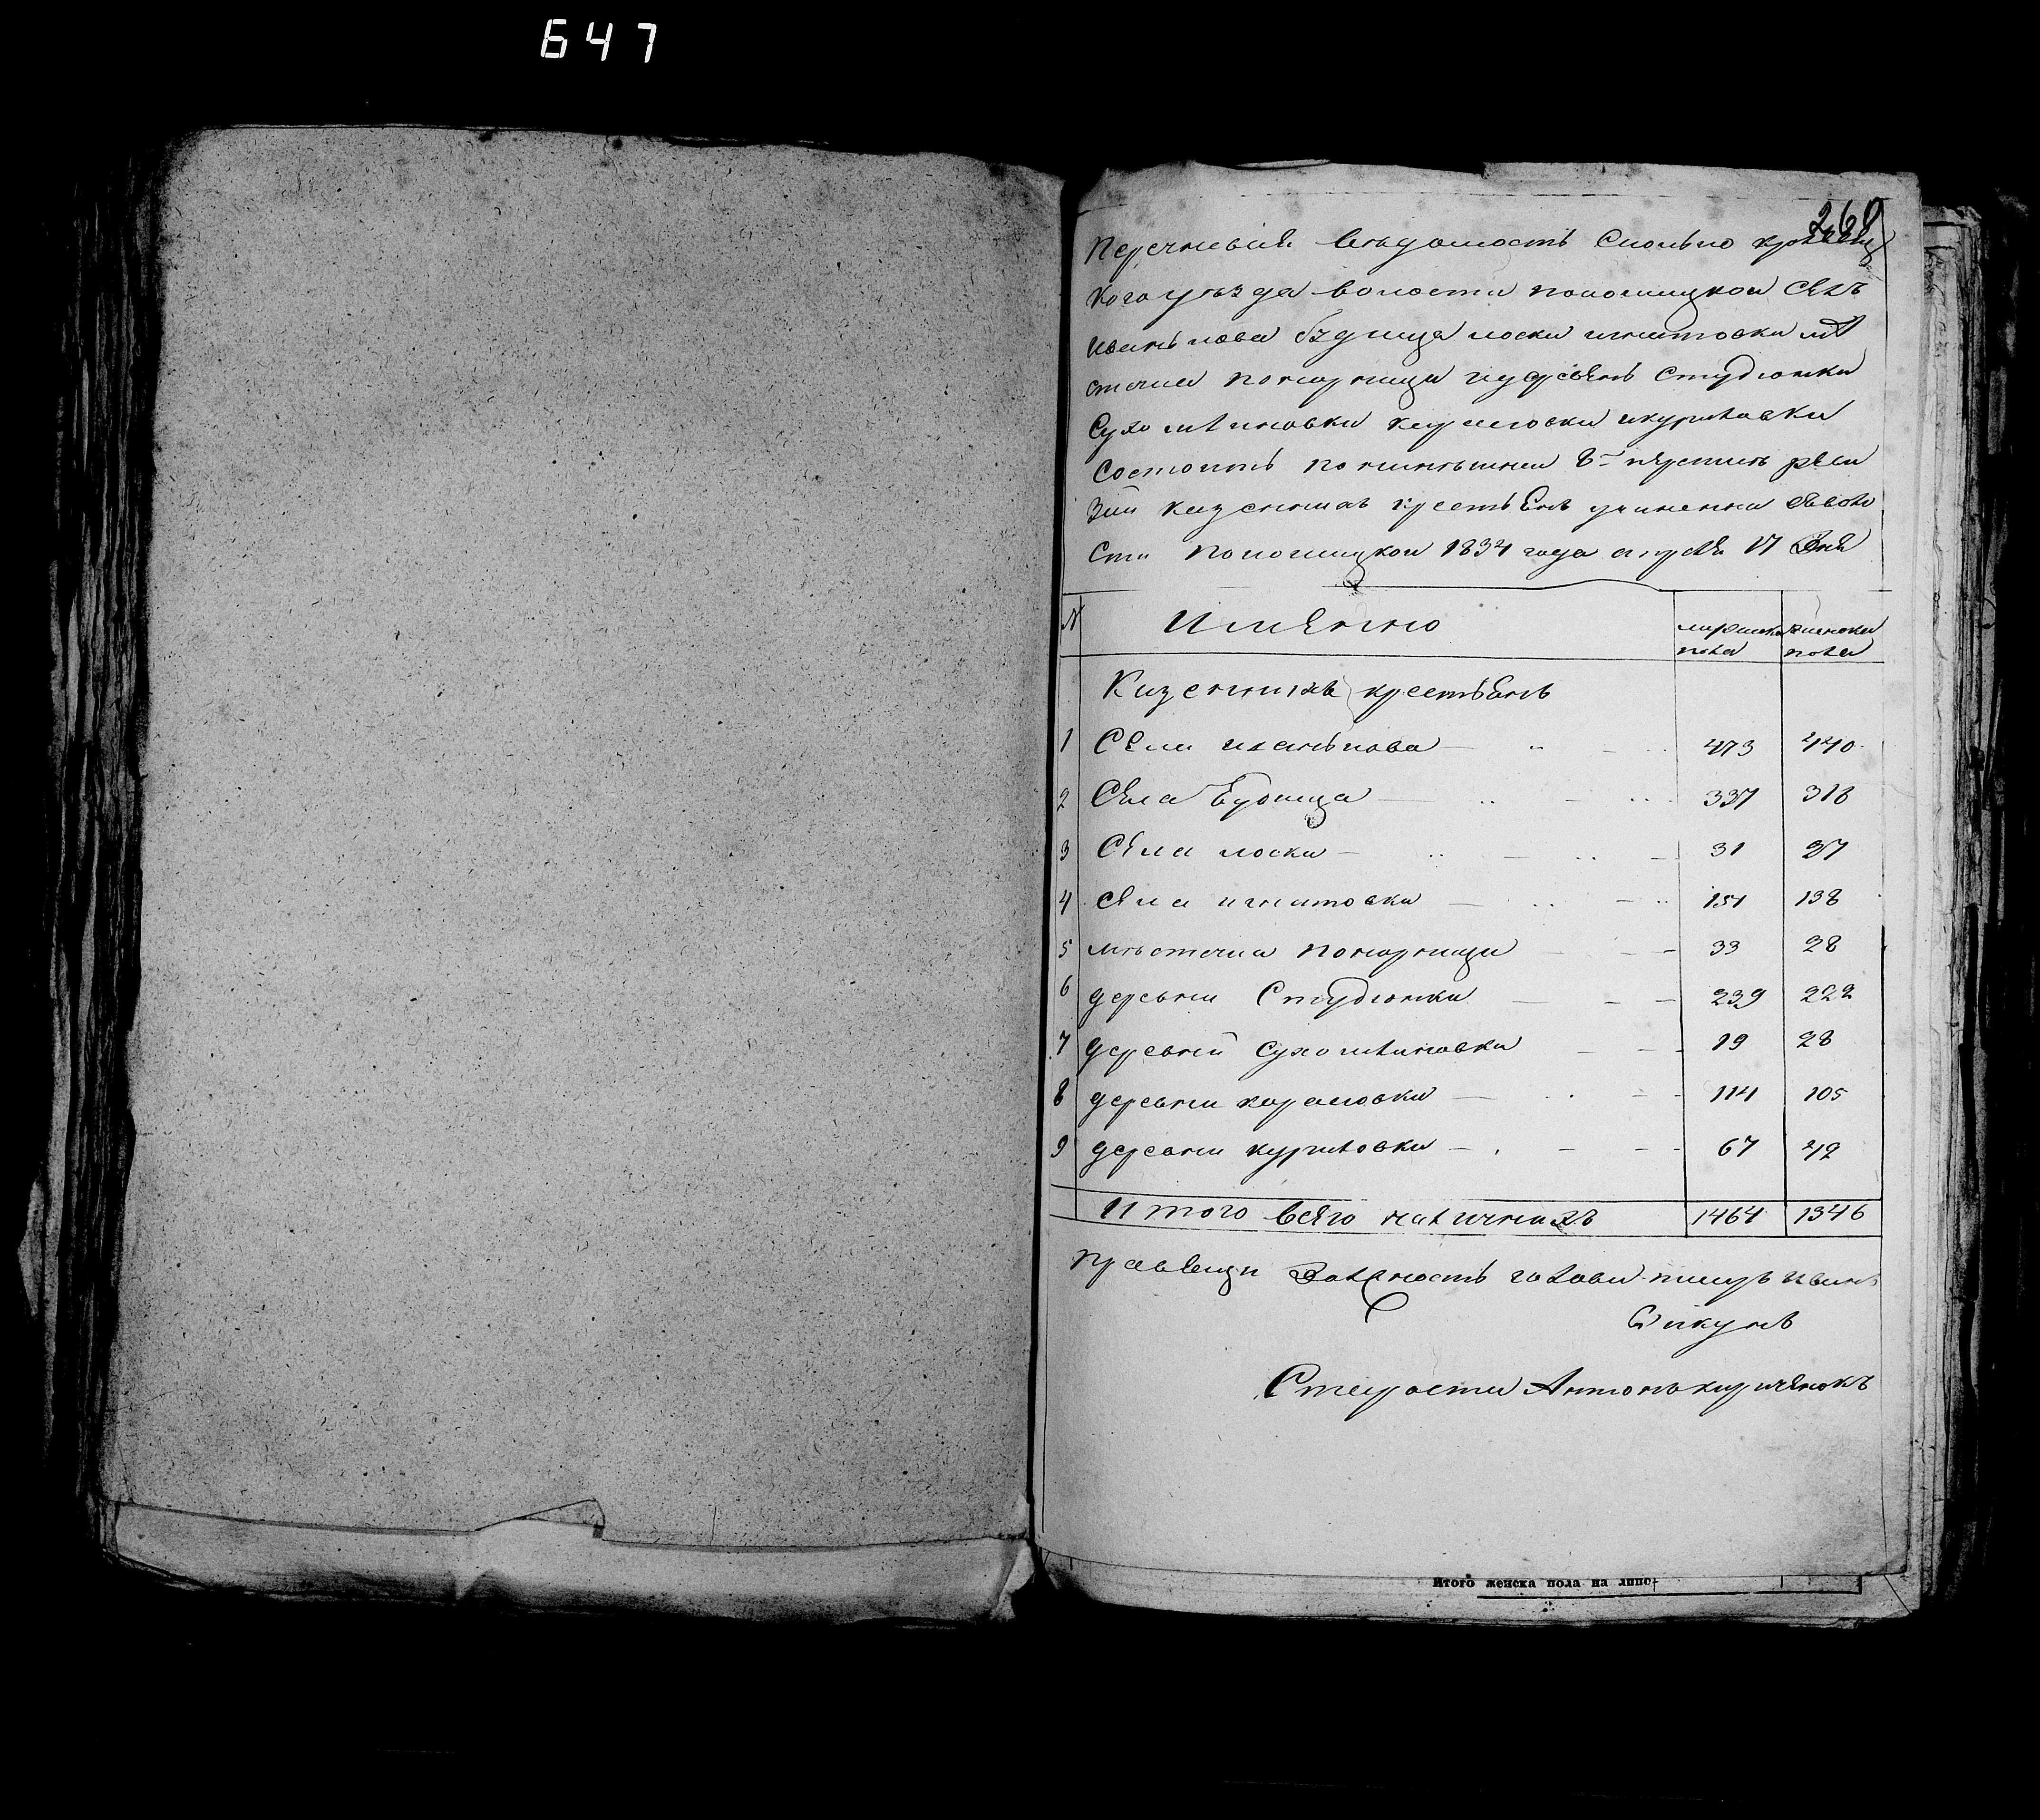 647
260
Перечневыя ведомость Сколько кролевец
кого уезда волости понорницкой селъ
иванькова будища лоски игнатовки ме
стечка понорници и деревень Студионки
Сухомлиновки карамовки и куриловки
Состоитъ по нинешней 8й переписе реви
зии казенныхъ крестьенъ учинена въ воло
сти понорницкой 1834 года апреля 17 дня
№ Именно мужска пола женска пола
Казенныхъ крестьенъ
1 Села иванькова 473 440
2 Села Будища 337 318
3 Села лоски 31 27
4 Села игнатовки 151 138
5 местечка понорници 33 28
6 деревни Студионки 239 222
7 деревни Сухомлиновки 19 28
8 деревни карамовки 114 105
9 деревни куриловки 67 42
Итого всего наличныхъ 1464 1346
правящи должность головы писарь Иванъ
Дикунъ
Староста Антонъ
Итого женска пола на лицо